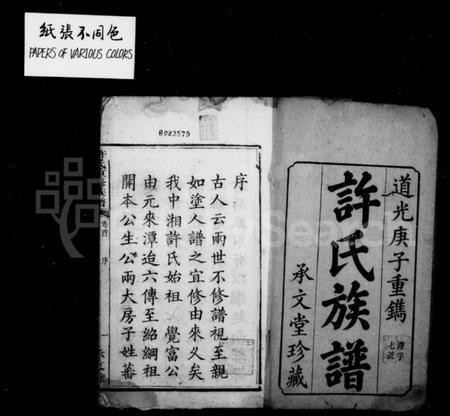 紙張不同色
PAPERS OF VARIOUS COLORS
8083579
道光庚子重鐫
許氏族譜
承文堂珍藏
序
古人云兩世不修譜視至親
如塗人譜之宜修由來乂矣
我中湘許氏始祖 覺富公
由元來潭迨六傳至紹綱祖
開本公生公兩大房子姓蕃
卷首 序